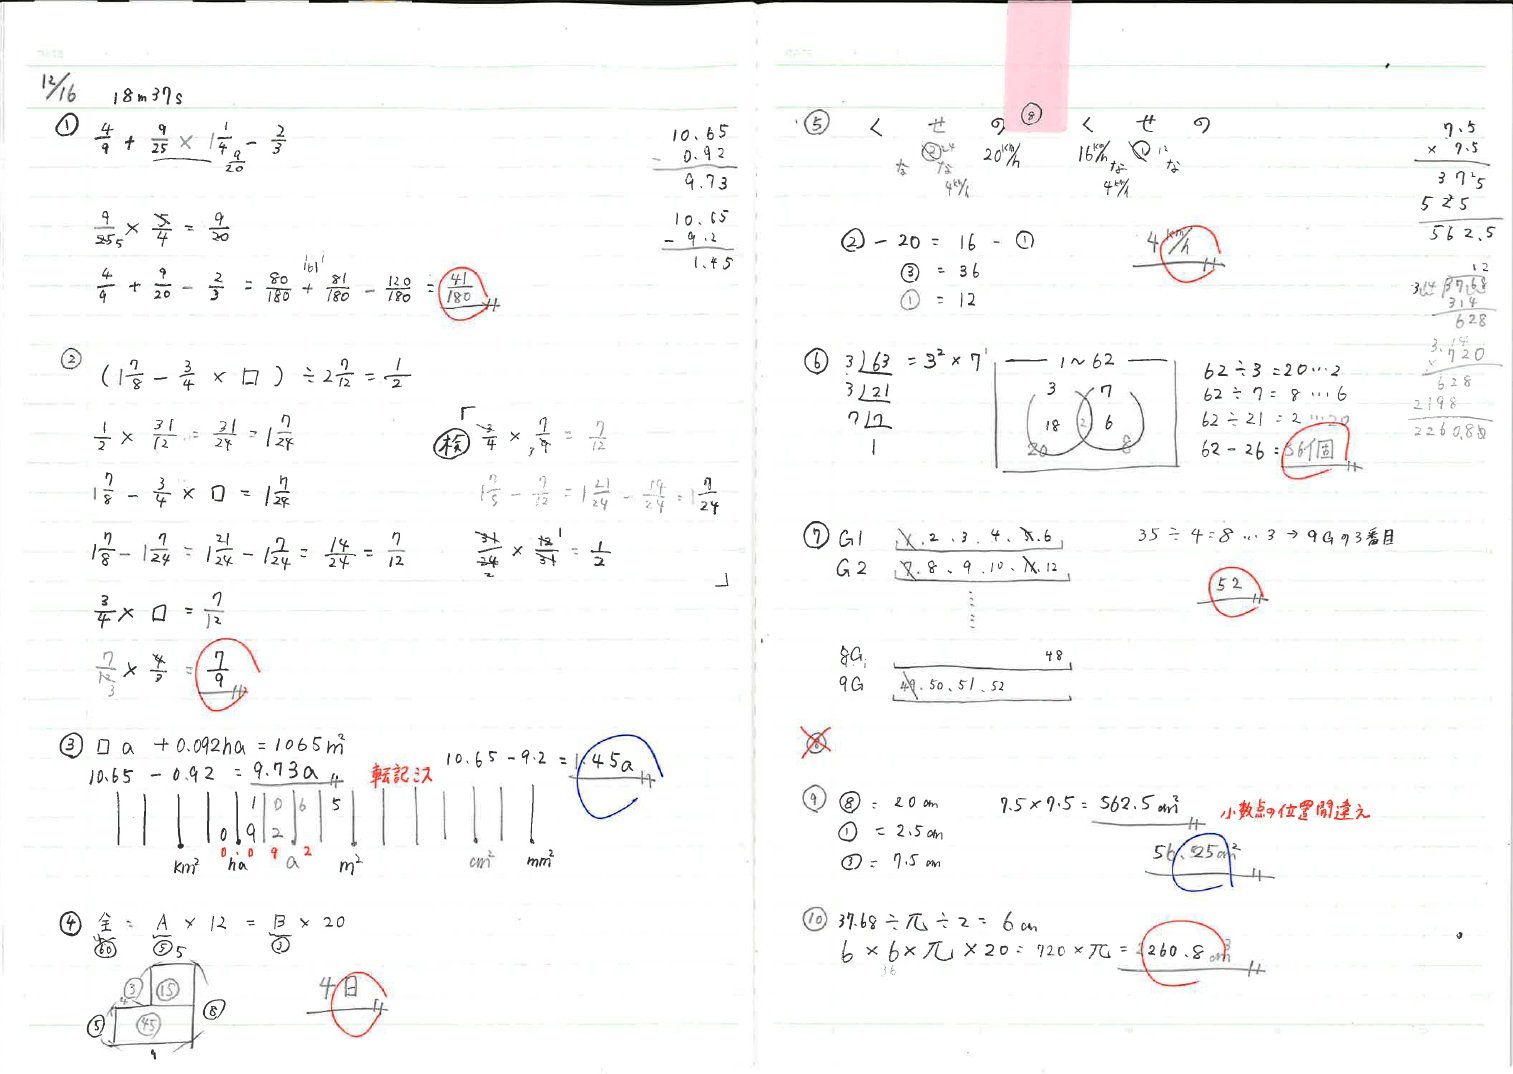 12/16 18m37s
① 4/9 + 9/25 × 1 1/4 - 2/3
9/20
9/25 5 × 5/4 = 9/20
4/9 + 9/20 - 2/3 = 80/180 + 81/180 - 120/180 = 41/180
161
10.65
- 0.92
9.73
10.65
- 9.2
1.45
② (1 7/8 - 3/4 × □) ÷ 2 7/12 = 1/2
1/2 × 31/12 = 31/24 = 1 7/24
1 7/8 - 3/4 × □ = 1 7/24
1 7/8 - 1 7/24 = 1 21/24 - 1 7/24 = 14/24 = 7/12
3/4 × □ = 7/12
7/12 3 × 4/3 = 7/9
「
検 3/4 × 7/9 3 = 7/12
1 7/8 - 7/12 = 1 21/24 - 14/24 = 1 7/24
31/24 2 × 12/31 1 = 1/2
」
③ □a + 0.092ha = 1065m²
10.65 - 0.92 = 9.73a 転記ミス
10.65 - 9.2 = 1.45a
1 0 6 5
0 9 2
0 . 0 9 2
km² ha a m² cm² mm²
④ 全 = A × 12 = B × 20
60 ⑤ ③
5
③ ⑮
⑤ ㊺ ⑧
9
4日
⑤ く せ の ⑧ く せ の
② 24 20km/h 16km/h ① 12
な な な な
4km/h 4km/h
② - 20 = 16 - ①
③ = 36
① = 12
4km/h
7.5
× 7.5
375
525
562.5
12
3.14 37.68
314
628
3.14
× 720
628
2198
2260.80
⑥ 3 63 = 3² × 7¹
3 21
7 7
1
1～62
3 7
18 2 6
20 8
62 ÷ 3 = 20…2
62 ÷ 7 = 8…6
62 ÷ 21 = 2…20
62 - 26 = 36個
⑦ G1 1.2.3.4.5.6
G2 7.8.9.10.11.12
8G 48
9G 49.50.51.52
35 ÷ 4 = 8…3 → 9Gの3番目
52
⑧
⑨ ⑧ = 20cm
① = 2.5cm
③ = 7.5cm
7.5×7.5 = 562.5cm² 小数点の位置間違え
56.25cm²
⑩ 37.68 ÷ π ÷ 2 = 6cm
6 × 6 × π × 20 = 720 × π = 2260.8cm³
36